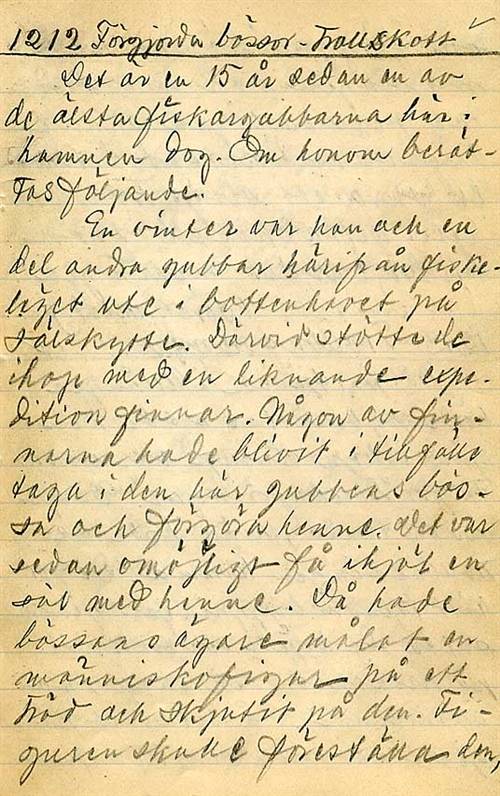 1212 Förgjorda bössor - Trollskott
Det är en 15 år sedan en av
de älsta fiskargubbarna här i
hamnen dog. Om honom berät-
tas följande.
En vinter var han och en
del andra gubbar härifrån fiske-
läget ute i bottenhavet på
sälskytte. Därvid stötte de
ihop med en liknande expe-
dition finnar. Någon av fin-
narna hade blivit i tillfälle
taga i den här gubbens bös-
sa och förgöra henne. Det var
sedan omöjligt få ihjäl en
säl med henne. Då hade
bössans ägare målat en
människofigur på ett
träd och skjutit på den. Fi-
guren skulle föreställa den,